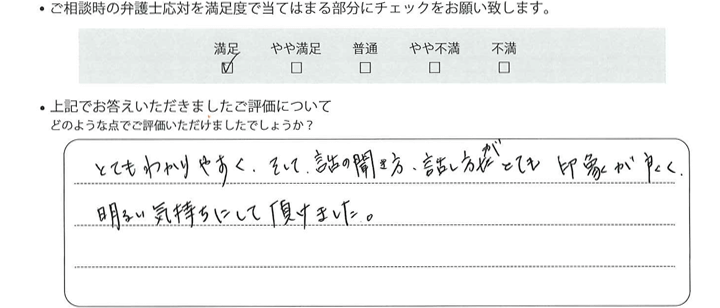 • ご相談時の弁護士応対を満足度で当てはまる部分にチェックをお願い致します。
満足 やや満足 普通 やや不満 不満
☑ ☐ ☐ ☐ ☐
• 上記でお答えいただきましたご評価について
どのような点でご評価いただけましたでしょうか？
とてもわかりやすく、そして、話の聞き方、話し方がとても印象が良く、
明るい気持ちにして頂けました。